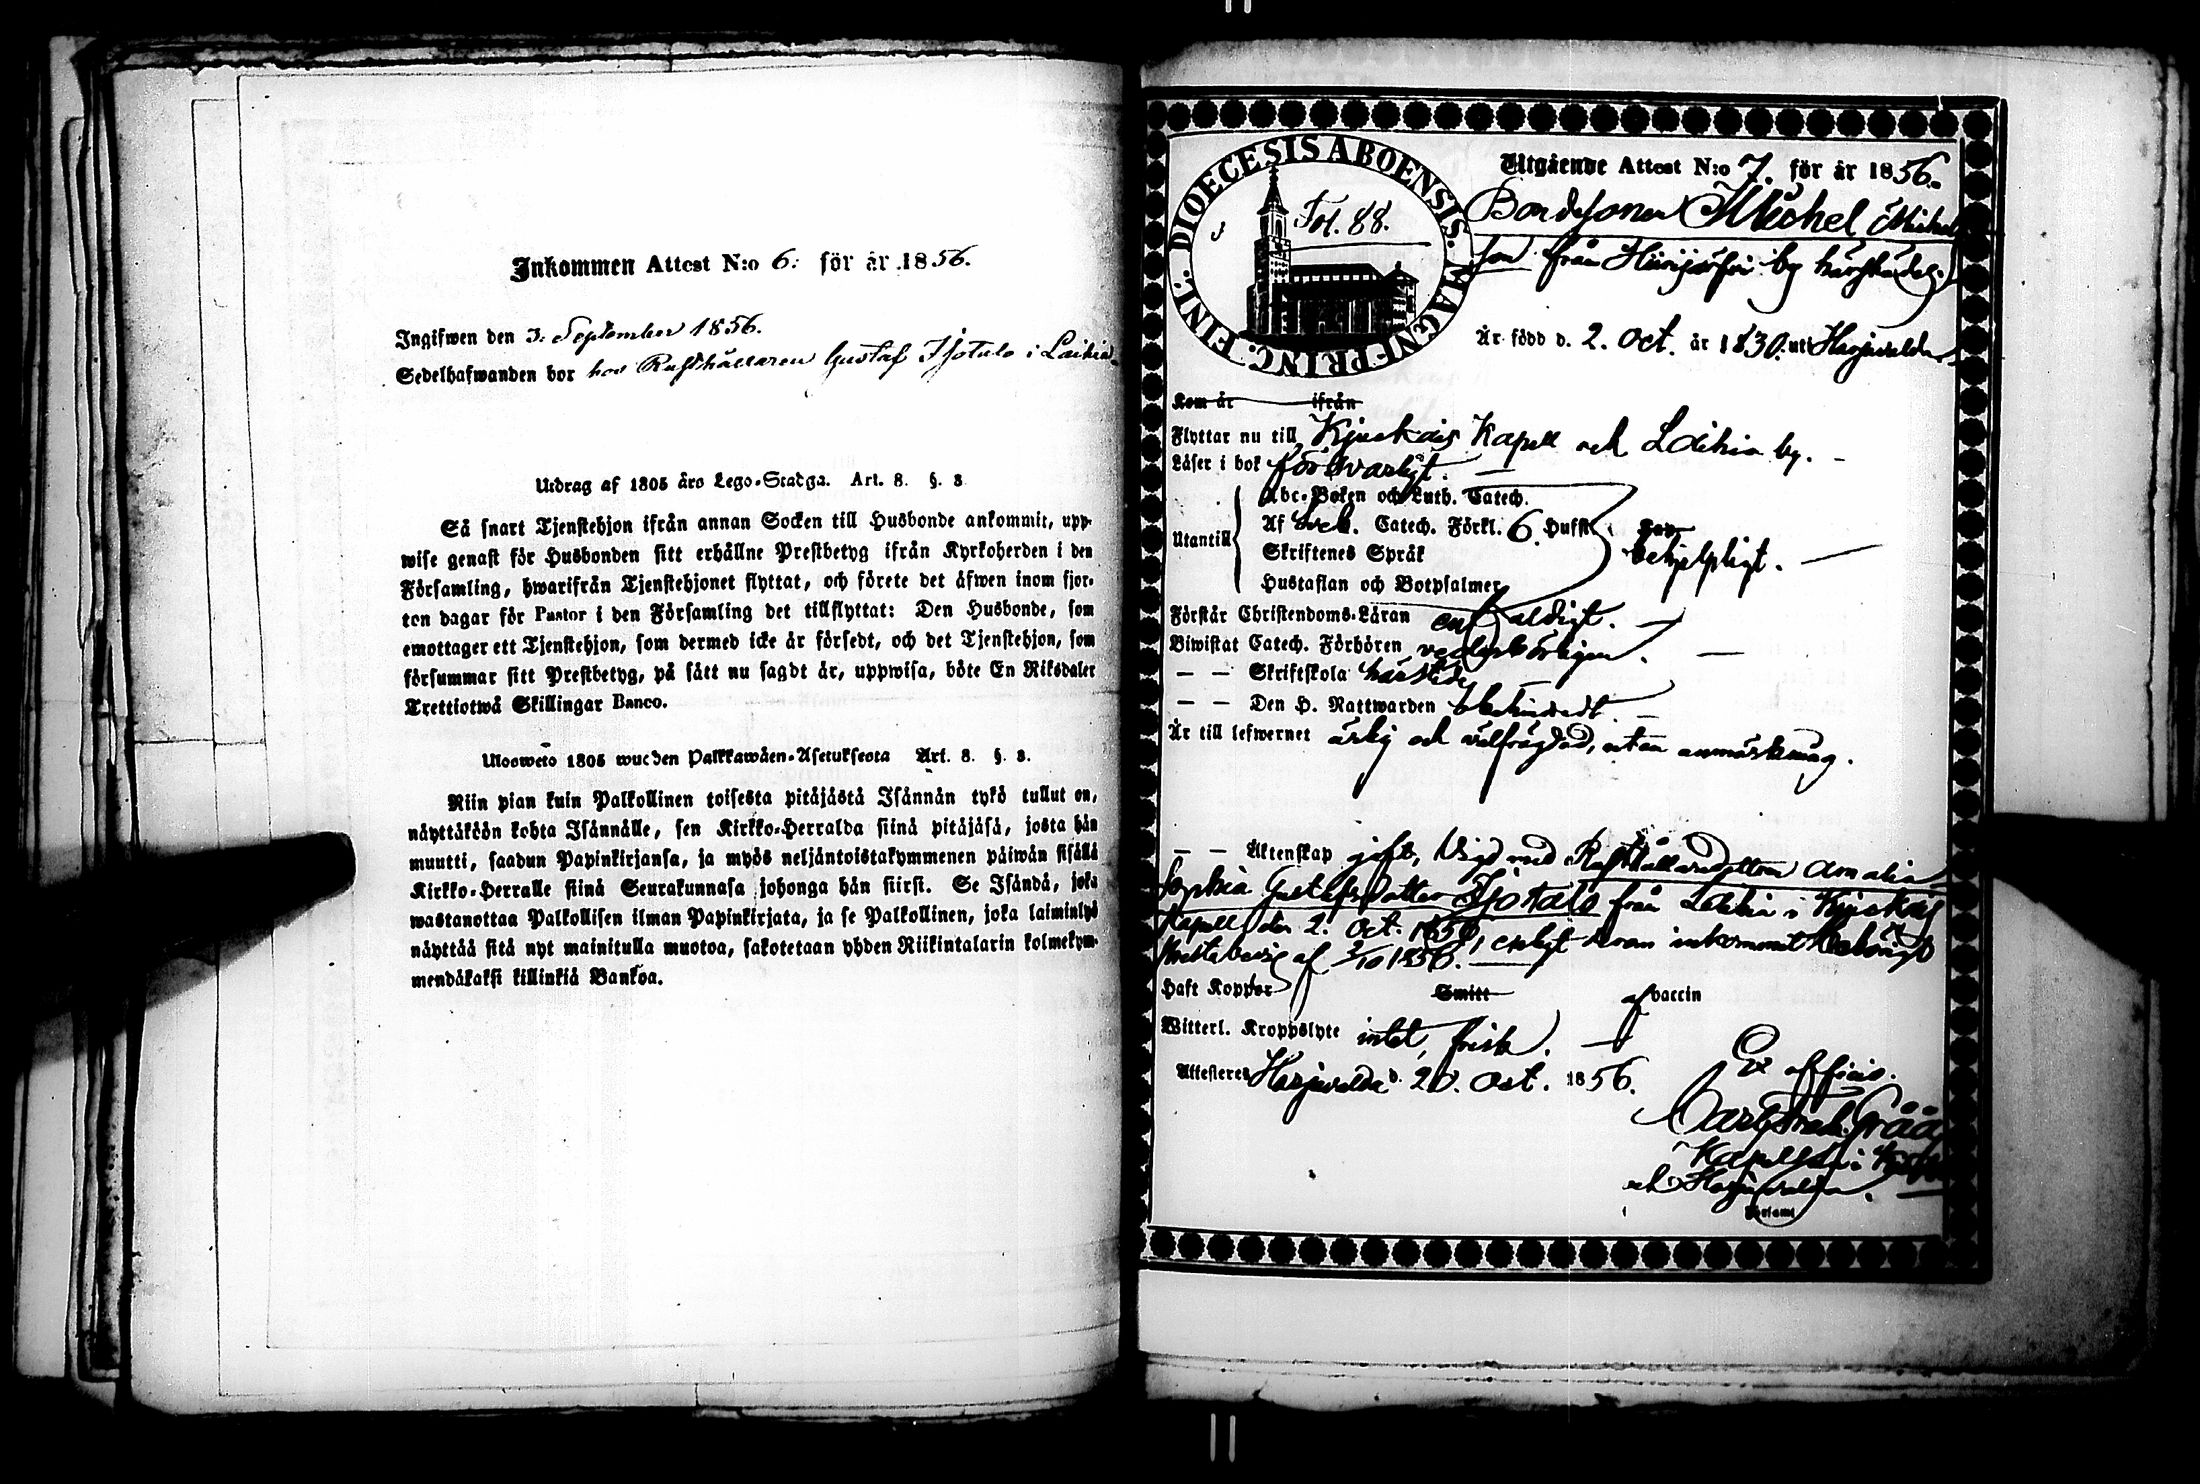 Inkommen Attest N:o 6: för år 1856.
Ingifwen den 3. September 1856.
Sedelhafwanden bor hos Rusthållaren Gustaf Tjotalo i Laihia
Utdrag af 1805 års Lego-Stadga. Art. 8. §. 3
Så snart Tjenstehjon ifrån annan Socken till Husbonde ankommit, upp-
wise genast för Husbonden sitt erhållne Prestbetyg ifrån Kyrkoherden i den
Församling, hwarifrån Tjenstehjonet flyttat, och förete det äfwen inom fjor-
ton dagar för Pastor i den Församling det tillflyttat: Den Husbonde, som
emottager ett Tjenstehjon, som dermed icke är försedt, och det Tjenstehjon, som
försummar sitt Prestbetyg, på sätt nu sagdt är, uppwisa, böte En Riksdaler
Trettiotwå Skillingar Banco.
Ulosweto 1805 wuoden Palkkawäen-Asetuksesta Art. 8. §. 3.
Niin pian kuin Palkollinen toisesta pitäjästä Isännän tykö tullut on,
näyttäköön kohta Isännälle, sen Kirkko-Herralda siinä pitäjäsä, josta hän
muutti, saadun Papinkirjansa, ja myös neljäntoistakymmenen päiwän sisällä
Kirkko-Herralle siinä Seurakunnasa johonga hän siirsi. Se Isändä, joka
wastanottaa Palkollisen ilman Papinkirjata, ja se Palkollinen, joka laiminlyö
näyttää sitä nyt mainitulla muotoa, sakotetaan yhden Riikintalarin kolmekym-
mendäkaksi killinkiä Bankoa.
DIOECESIS ABOENSIS. MAGNI PRINC. FINL.
Fol. 88.
Utgående Attest N:o 7. för år 1856.
Bondesonen Michel Michels
son från Hiirijärfvi by härstädes.
Är född d. 2. Oct. år 1830. uti Harjavalda
Kom år ifrån
Flyttar nu till Kjuckais Kapell och Laihia by.
Läser i bok försvarligt.
Utantill
Abc-Boken och Luth. Catech.
Af Sveb. Catech. Förkl. 6. Hufst.
Skriftenes Språk
Hustaflan och Botpsalmer
behjelpligt.
Förstår Christendoms-Läran enfaldigt.
Biwistat Catech. Förhören vederbörligen.
— — Skriftskola härstädes
— — Den H. Nattwarden obehindradt
Är till lefwernet ärlig och välfrägdad, utan anmärkning.
— — Äktenskap gift, Vigd med Rusthållaredottren Amalia
Sophia Gustafsdotter Tjotalo från Laihia i Kjuckais
Kapell den 2. Oct. 1856, enligt derom inkommit Herborigt
Prestabevis af 2/10 1856.
Haft Koppor Smitt af vaccin
Witterl. Kroppslyte intet, frisk.
Attesteras Harjavalda d. 20. Oct. 1856.
Ex officio.
Kapellan i
och Harjavalda.
Församl